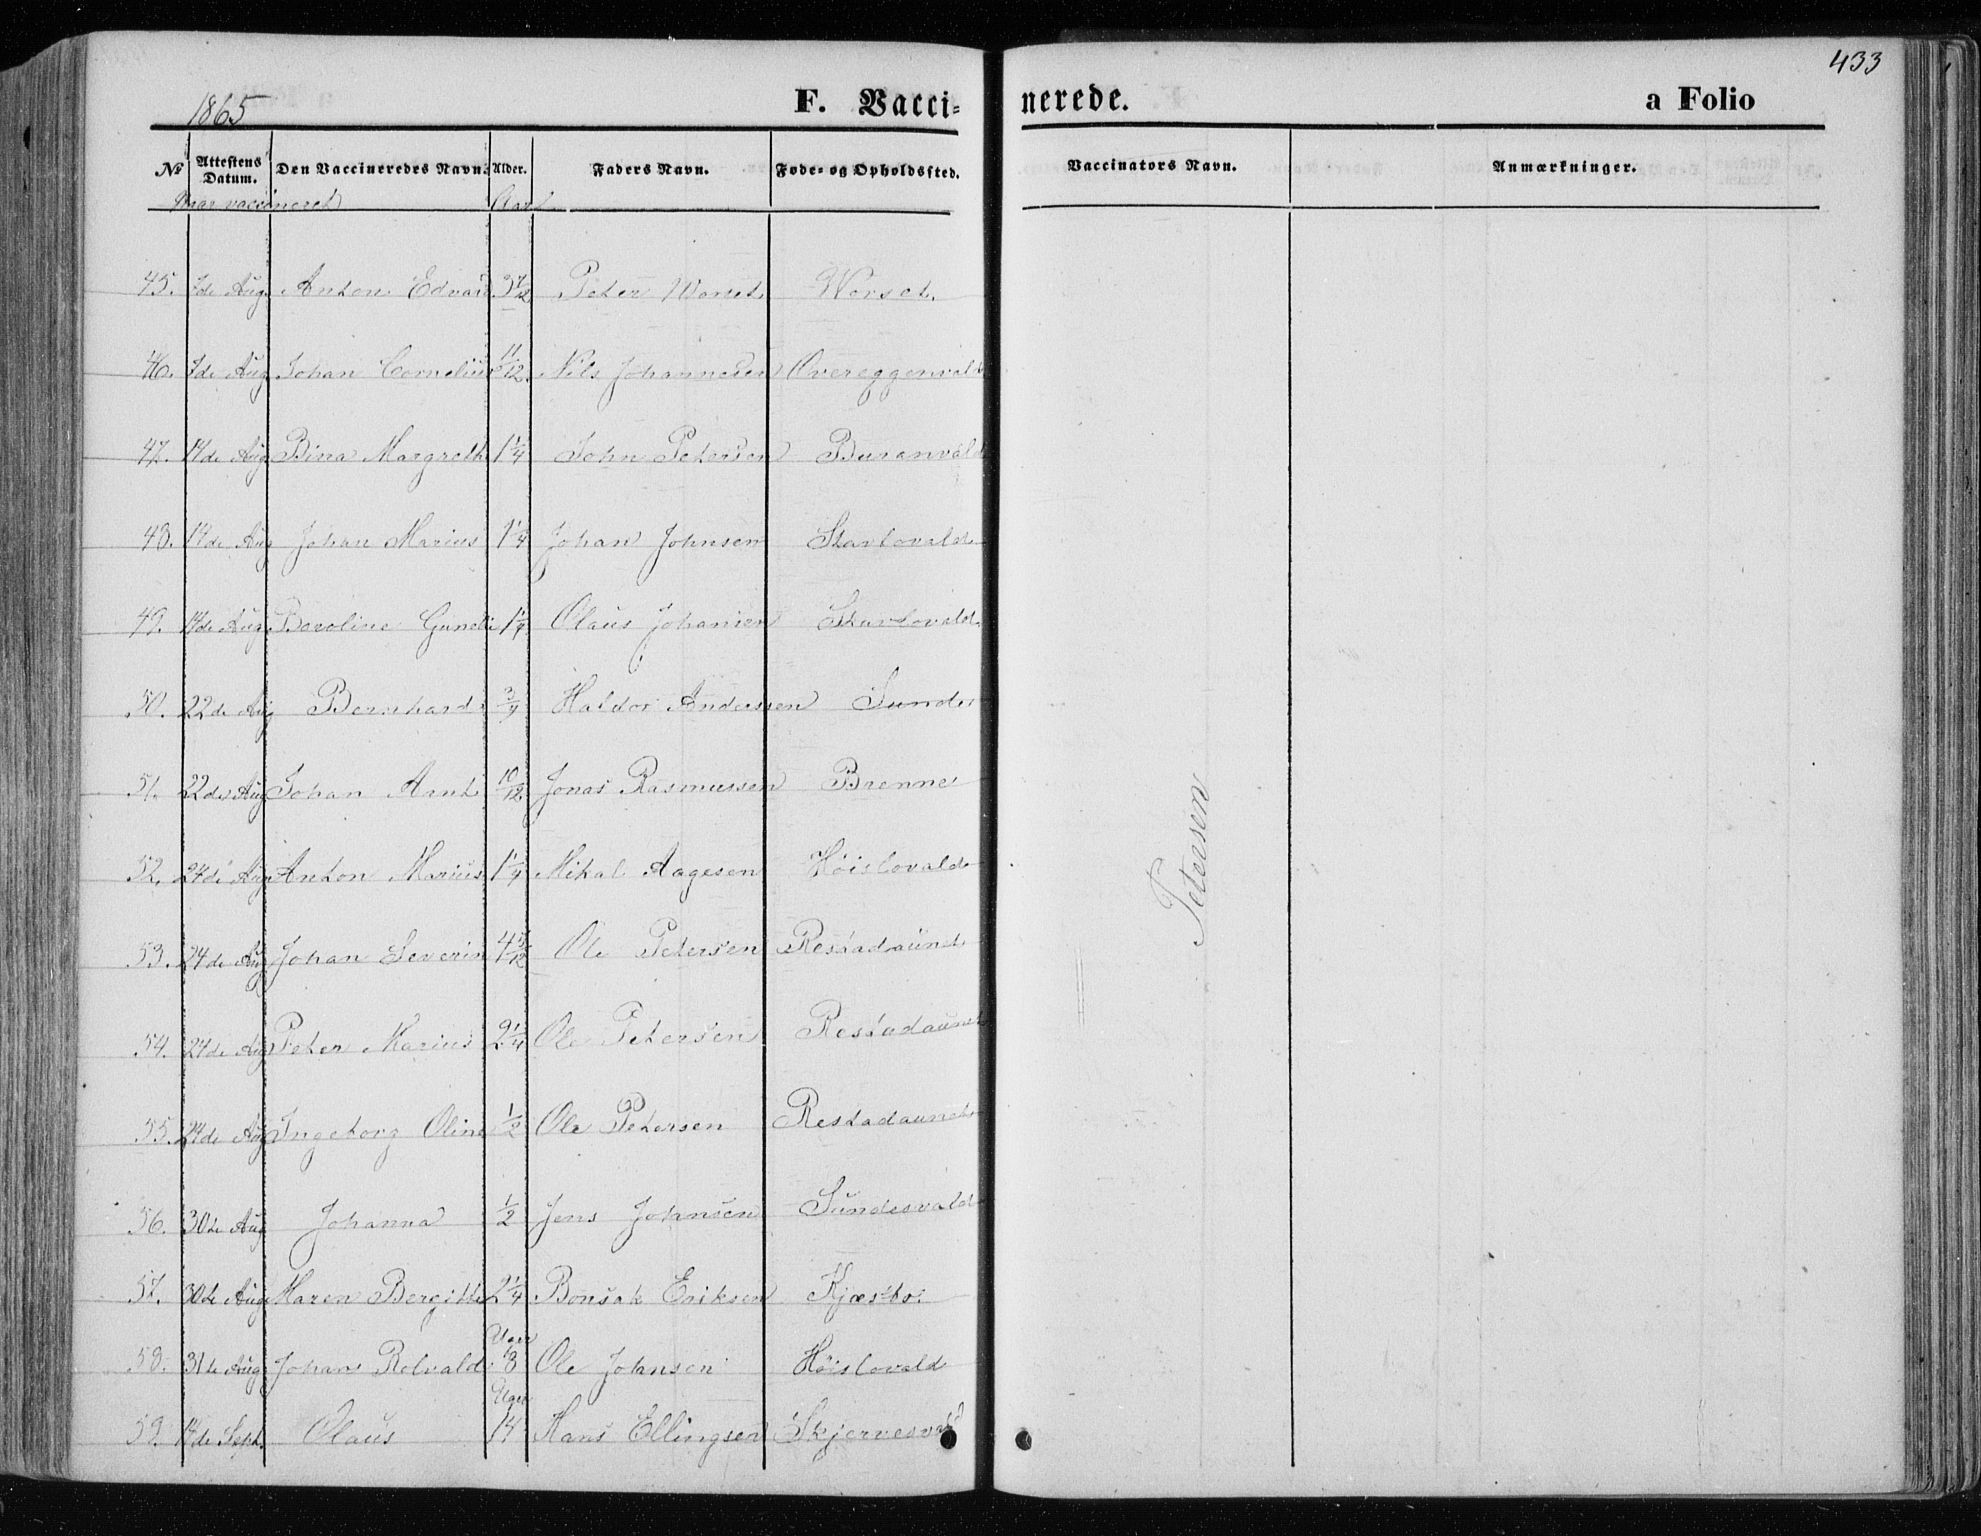 433
1865
F. Vacci- nerede. a Folio
No Attestens Datum. Den Vaccineredes Navn. Alder. Faders Navn. Føde- og Opholdssted. Vaccinators Navn. Anmærkninger.
Naar vaccineret Aar
45. 7de Aug Anton Edvard 3 7/12 Peter Worset Worset.
46. 7de Aug Johan Cornelius 11/12 Nils Johannesen Overeggenvald
47. 14de Aug Bina Margreth 1 1/4 John Petersen Buranvald
48. 14de Aug Johan Marius 1 1/4 Johan Johnsen Skavlovald
49. 14de Aug. Beroline 1 1/4 Olaus Johansen Skavlovald
50. 22de Aug Bernhard 3/4 Haldor Anderssen Sunde
51. 22de Aug Johan Arnt 10/12 Jonas Rasmussen Brenne
52. 24de Aug Anton Marius 1 1/4 Mikal Aagesen Høislovald
53. 24de Aug Johan Severin 4 5/12 Ole Petersen Restadaunet
54. 24de Aug Peter Marius 2 1/4 Ole Petersen Restadaunet
55. 24de Aug Ingeborg Oline 1/2 Ole Petersen Restadaunet
56. 30te Aug Johanna 1/2 Jens Johnsen Sundesvald
57. 30te Aug Maren Bergitte 2 1/4 Bonsak Eriksen Kjæsbo.
58. 31te Aug Johan Rolvald Uger 8 Ole Johnsen Høislovald
59. 14de Sept. Olaus Uger 14 Hans Ellingsen Skjervesvald
Petersen